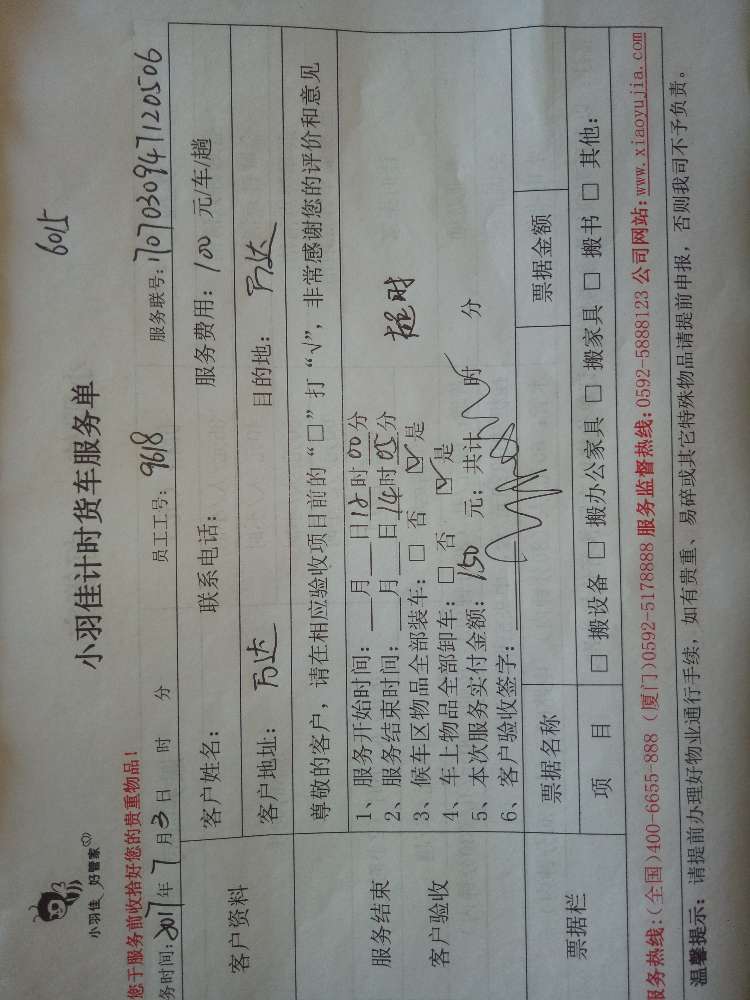 小羽佳 好管家
6015
小羽佳计时货车服务单
您于服务前收拾好您的贵重物品!
务时间: 2017年 7月3日 时 分 员工工号: 9618 服务联号: 1707030947120506
客户资料
客户姓名: 联系电话: 服务费用: 100 元/车/趟
客户地址: 万达 目的地: 万达
服务结束
客户验收
尊敬的客户, 请在相应验收项目前的 “□” 打 “√”, 非常感谢您的评价和意见
1、服务开始时间: 月 日12时00分
2、服务结束时间: 月 日14时05分 超时
3、候车区物品全部装车: □ 否 ☑ 是
4、车上物品全部卸车: □ 否 ☑ 是
5、本次服务实付金额: 150 元: 共计 时 分
6、客户验收签字:
票据栏
票据名称 票据金额
项 目 □ 搬设备 □ 搬办公家具 □ 搬家具 □ 搬书 □ 其他:
服务热线:(全国)400-6655-888 (厦门)0592-5178888 服务监督热线:0592-5888123 公司网站: www.xiaoyujia.com
温馨提示: 请提前办理好物业通行手续, 如有贵重、易碎或其它特殊物品请提前申报, 否则我司不予负责。